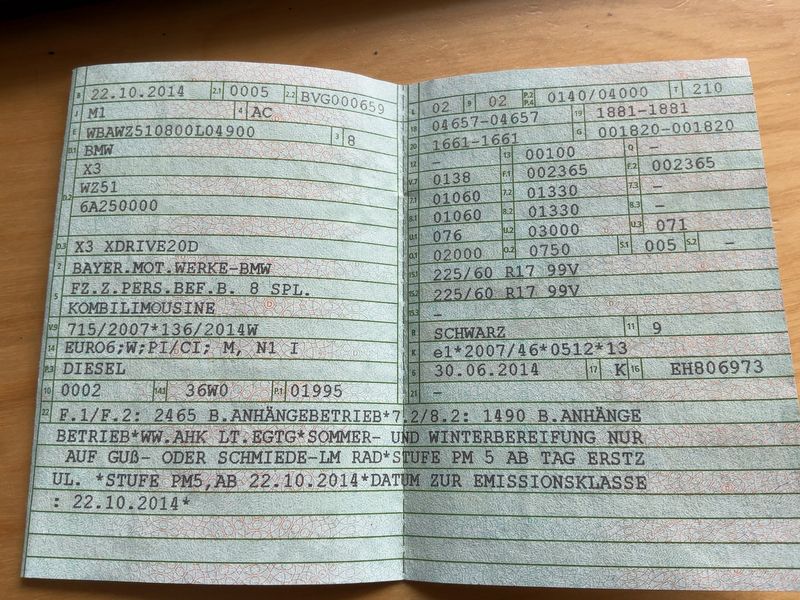 B 22.10.2014 2.1 0005 2.2 BVG000659
J M1 4 AC
E WBAWZ510800L04900 3 8
D.1 BMW
X3
D.2 WZ51
6A250000
D.3 X3 XDRIVE20D
2 BAYER.MOT.WERKE-BMW
5 FZ.Z.PERS.BEF.B. 8 SPL.
KOMBILIMOUSINE
V.9 715/2007*136/2014W
14 EURO6;W;PI/CI; M, N1 I
P.3 DIESEL
10 0002 14.1 36W0 P.1 01995
L 02 9 02 P.2 P.4 0140/04000 T 210
18 04657-04657 19 1881-1881
20 1661-1661 G 001820-001820
12 - 13 00100 Q -
V.7 0138 F.1 002365 F.2 002365
7.1 01060 7.2 01330 7.3 -
8.1 01060 8.2 01330 8.3 -
U.1 076 U.2 03000 U.3 071
O.1 02000 O.2 0750 S.1 005 S.2 -
15.1 225/60 R17 99V
15.2 225/60 R17 99V
15.3 -
R SCHWARZ 11 9
K e1*2007/46*0512*13
6 30.06.2014 17 K 16 EH806973
21 -
22 F.1/F.2: 2465 B.ANHÄNGEBETRIEB*7.2/8.2: 1490 B.ANHÄNGE
BETRIEB*WW.AHK LT.EGTG*SOMMER- UND WINTERBEREIFUNG NUR
AUF GUß- ODER SCHMIEDE-LM RAD*STUFE PM 5 AB TAG ERSTZ
UL. *STUFE PM5,AB 22.10.2014*DATUM ZUR EMISSIONSKLASSE
: 22.10.2014*